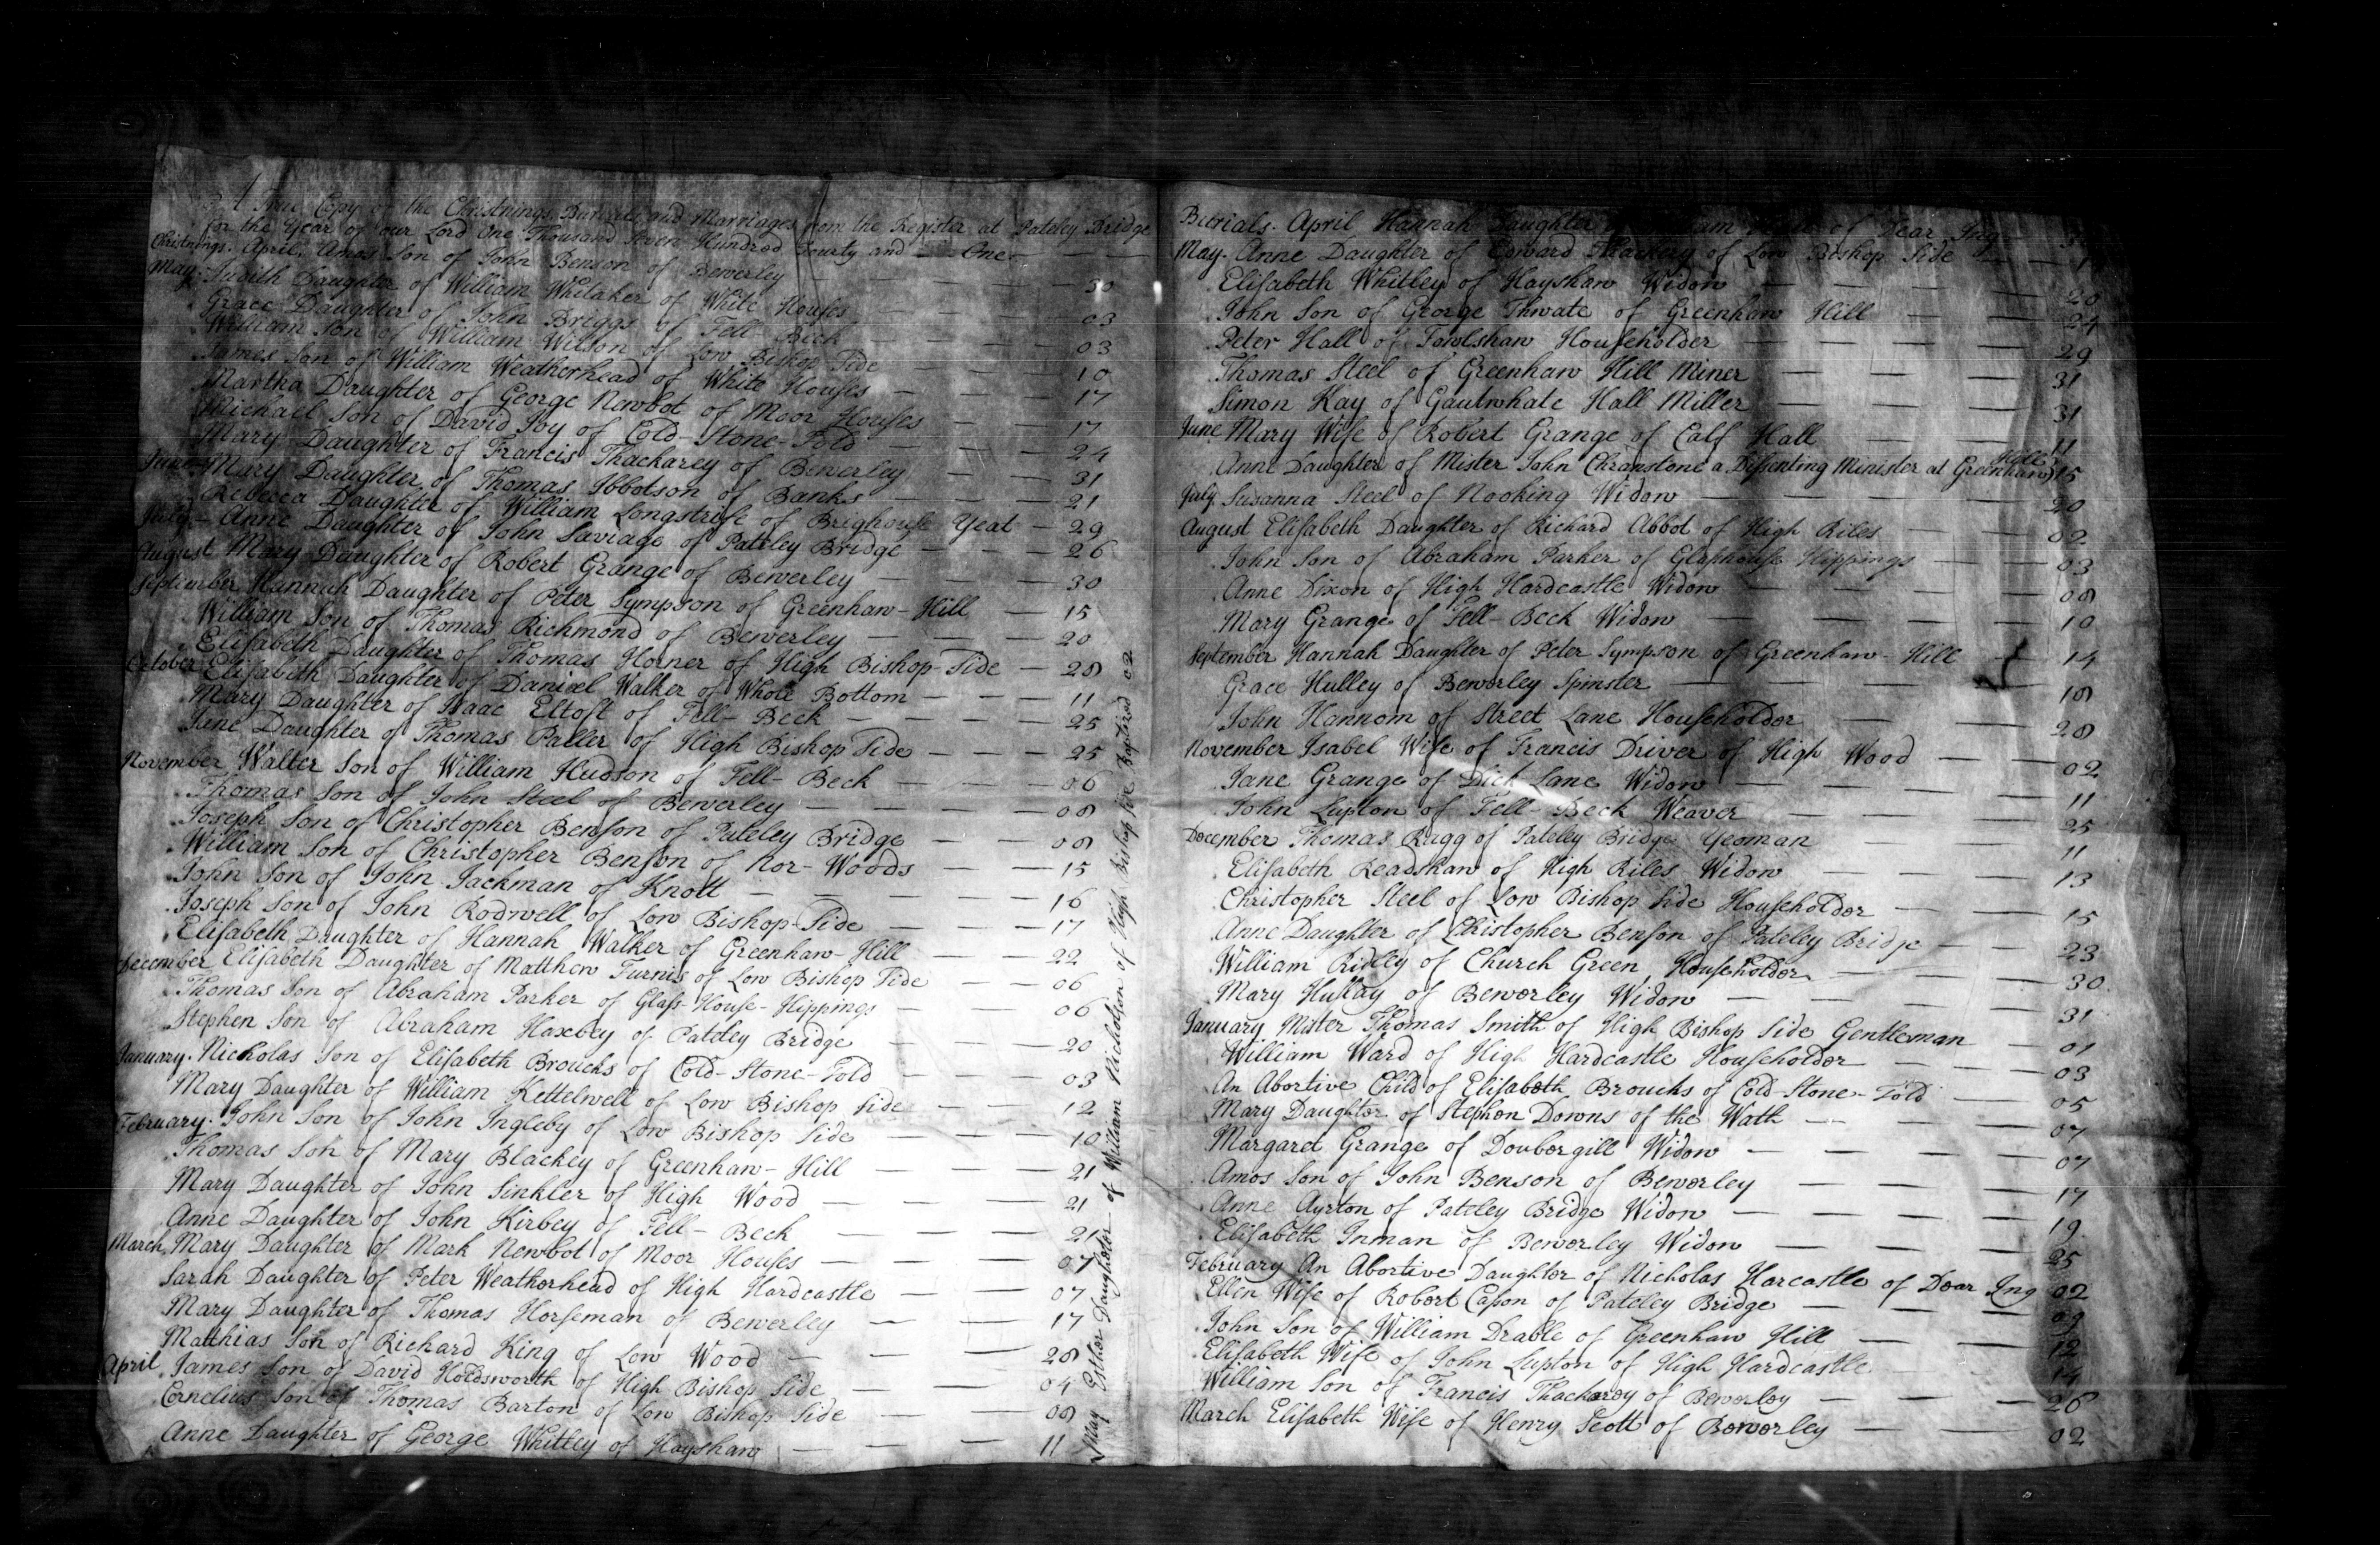 A True Copy of the Christnings, Burials and Marriages from the Register at Pateley Bridge
for the Year of our Lord One Thousand Seven Hundred Fourty and — One — —
Christnings. April. Amos Son of John Benson of Bewerley — — — — 30
May. Judith Daughter of William Whitaker of White Houses — — — 03
Grace Daughter of John Briggs of Fell-Beck — — — 03
William Son of William Wilson of Low Bishop Side — — — 10
James Son of William Weatherhead of White Houses — — — 17
Martha Daughter of George Newbot of Moor Houses — — 17
Michael Son of David Joy of Cold-Stone-Fold — — — 24
Mary Daughter of Francis Thackarey of Bewerley — — 31
June Mary Daughter of Thomas Ibbotson of Banks — — — 21
Rebecca Daughter of William Longstrife of Brighouse Yeat — 29
July — Anne Daughter of John Saviage of Pateley Bridge — — — 26
August Mary Daughter of Robert Grange of Bewerley — — — 30
September Hannah Daughter of Peter Sympson of Greenhaw-Hill — 15
William Son of Thomas Richmond of Bewerley — — — 20
Elisabeth Daughter of Thomas Horner of High Bishop-Side — 28
October Elisabeth Daughter of Daniel Walker of Whole Bottom — — — 11
Mary Daughter of Isaac Eltoft of Fell-Beck — — — — 25
Jane Daughter of Thomas Paller of High Bishop Side — — — 25
November Walter Son of William Hudson of Fell-Beck — — — 06
Thomas Son of John Steel of Bewerley — — — — 08
Joseph Son of Christopher Benson of Pateley Bridge — — 08
William Son of Christopher Benson of Nor-Woods — — 15
John Son of John Jackman of Knott — — — — 16
Joseph Son of John Rodwell of Low Bishop-Side — — — 17
Elisabeth Daughter of Hannah Walker of Greenhaw-Hill — — 22
December Elisabeth Daughter of Matthew Furnis of Low Bishop Side — — 06
Thomas Son of Abraham Parker of Glass-House-Hippings — — 06
Stephen Son of Abraham Haxbey of Pateley Bridge — — 20
January. Nicholas Son of Elisabeth Broucks of Cold-Stone-Fold — — 03
Mary Daughter of William Kettelwell of Low Bishop Side — — 12
February. John Son of John Ingleby of Low Bishop Side — — — 10
Thomas Son of Mary Blackey of Greenhaw-Hill — — — 21
Mary Daughter of John Sinkler of High Wood — — — 21
Anne Daughter of John Kirbey of Fell-Beck — — — 21
March. Mary Daughter of Mark Newbot of Moor Houses — — — 07
Sarah Daughter of Peter Weatherhead of High Hardcastle — — 07
Mary Daughter of Thomas Horseman of Bewerley — — 17
Matthias Son of Richard King of Low Wood — — — 28
April. James Son of David Holdsworth of High Bishop Side — — 04
Cornelius Son of Thomas Barton of Low Bishop Side — — 08
Anne Daughter of George Whitley of Hayshaw — — — 11
May Esther Daughter of William Nicholson of High Bishop Side Baptized 02
Burials. April Hannah Daughter of of Dear Ing
May. Anne Daughter of Edward Thackery of Low Bishop Side
Elisabeth Whitley of Hayshaw Widow — — — — 20
John Son of George Thwate of Greenhaw Hill — — — 24
Peter Hall of Fowlshaw Householder — — — — 29
Thomas Steel of Greenhaw Hill Miner — — — 31
Simon Kay of Gautwhate Hall Miller — — — 31
June Mary Wife of Robert Grange of Calf Hall — — — 11
Anne Daughter of Mister John Chranstone a Dissenting Minister at Greenhaw Hill 15
July. Susanna Steel of Nooking Widow — — — 20
August Elisabeth Daughter of Richard Abbot of High Riles — — 02
John Son of Abraham Parker of Glasshouse Hippings — — 03
Anne Dixon of High Hardcastle Widow — — — 08
Mary Grange of Fell-Beck Widow — — — — 10
September Hannah Daughter of Peter Sympson of Greenhaw-Hill — 14
Grace Hulley of Bewerley Spinster — — — — 18
John Hannom of Street Lane Householder — — — 28
November Isabel Wife of Francis Driver of High Wood — — 02
Jane Grange of Dick Lane Widow — — — — 11
John Lupton of Fell-Beck Weaver — — — — 25
December Thomas Rugg of Pateley Bridge Yeoman — — — 11
Elisabeth Readshaw of High Riles Widow — — — 13
Christopher Steel of Low Bishop Side Householder — — 15
Anne Daughter of Christopher Benson of Pateley Bridge — — 23
William Ridley of Church Green Householder — — — 30
Mary Hullay of Bewerley Widow — — — — 31
January Mister Thomas Smith of High Bishop Side Gentleman — 01
William Ward of High Hardcastle Householder — — — 03
An Abortive Child of Elisabeth Broucks of Cold-Stone-Fold — 05
Mary Daughter of Stephen Downs of the Wath — — — 07
Margaret Grange of Doubergill Widow — — — — 07
Amos Son of John Benson of Bewerley — — — — 17
Anne Ayrton of Pateley Bridge Widow — — — — 19
Elisabeth Inman of Bewerley Widow — — — — 25
February An Abortive Daughter of Nicholas Harcastle of Dear Ing 02
Ellen Wife of Robert Cason of Pateley Bridge — — — 09
John Son of William Drable of Greenhaw Hill — — — 12
Elisabeth Wife of John Lupton of High Hardcastle — — 14
William Son of Francis Thackarey of Bewerley — — — 26
March Elisabeth Wife of Henry Scott of Bewerley — — — 02